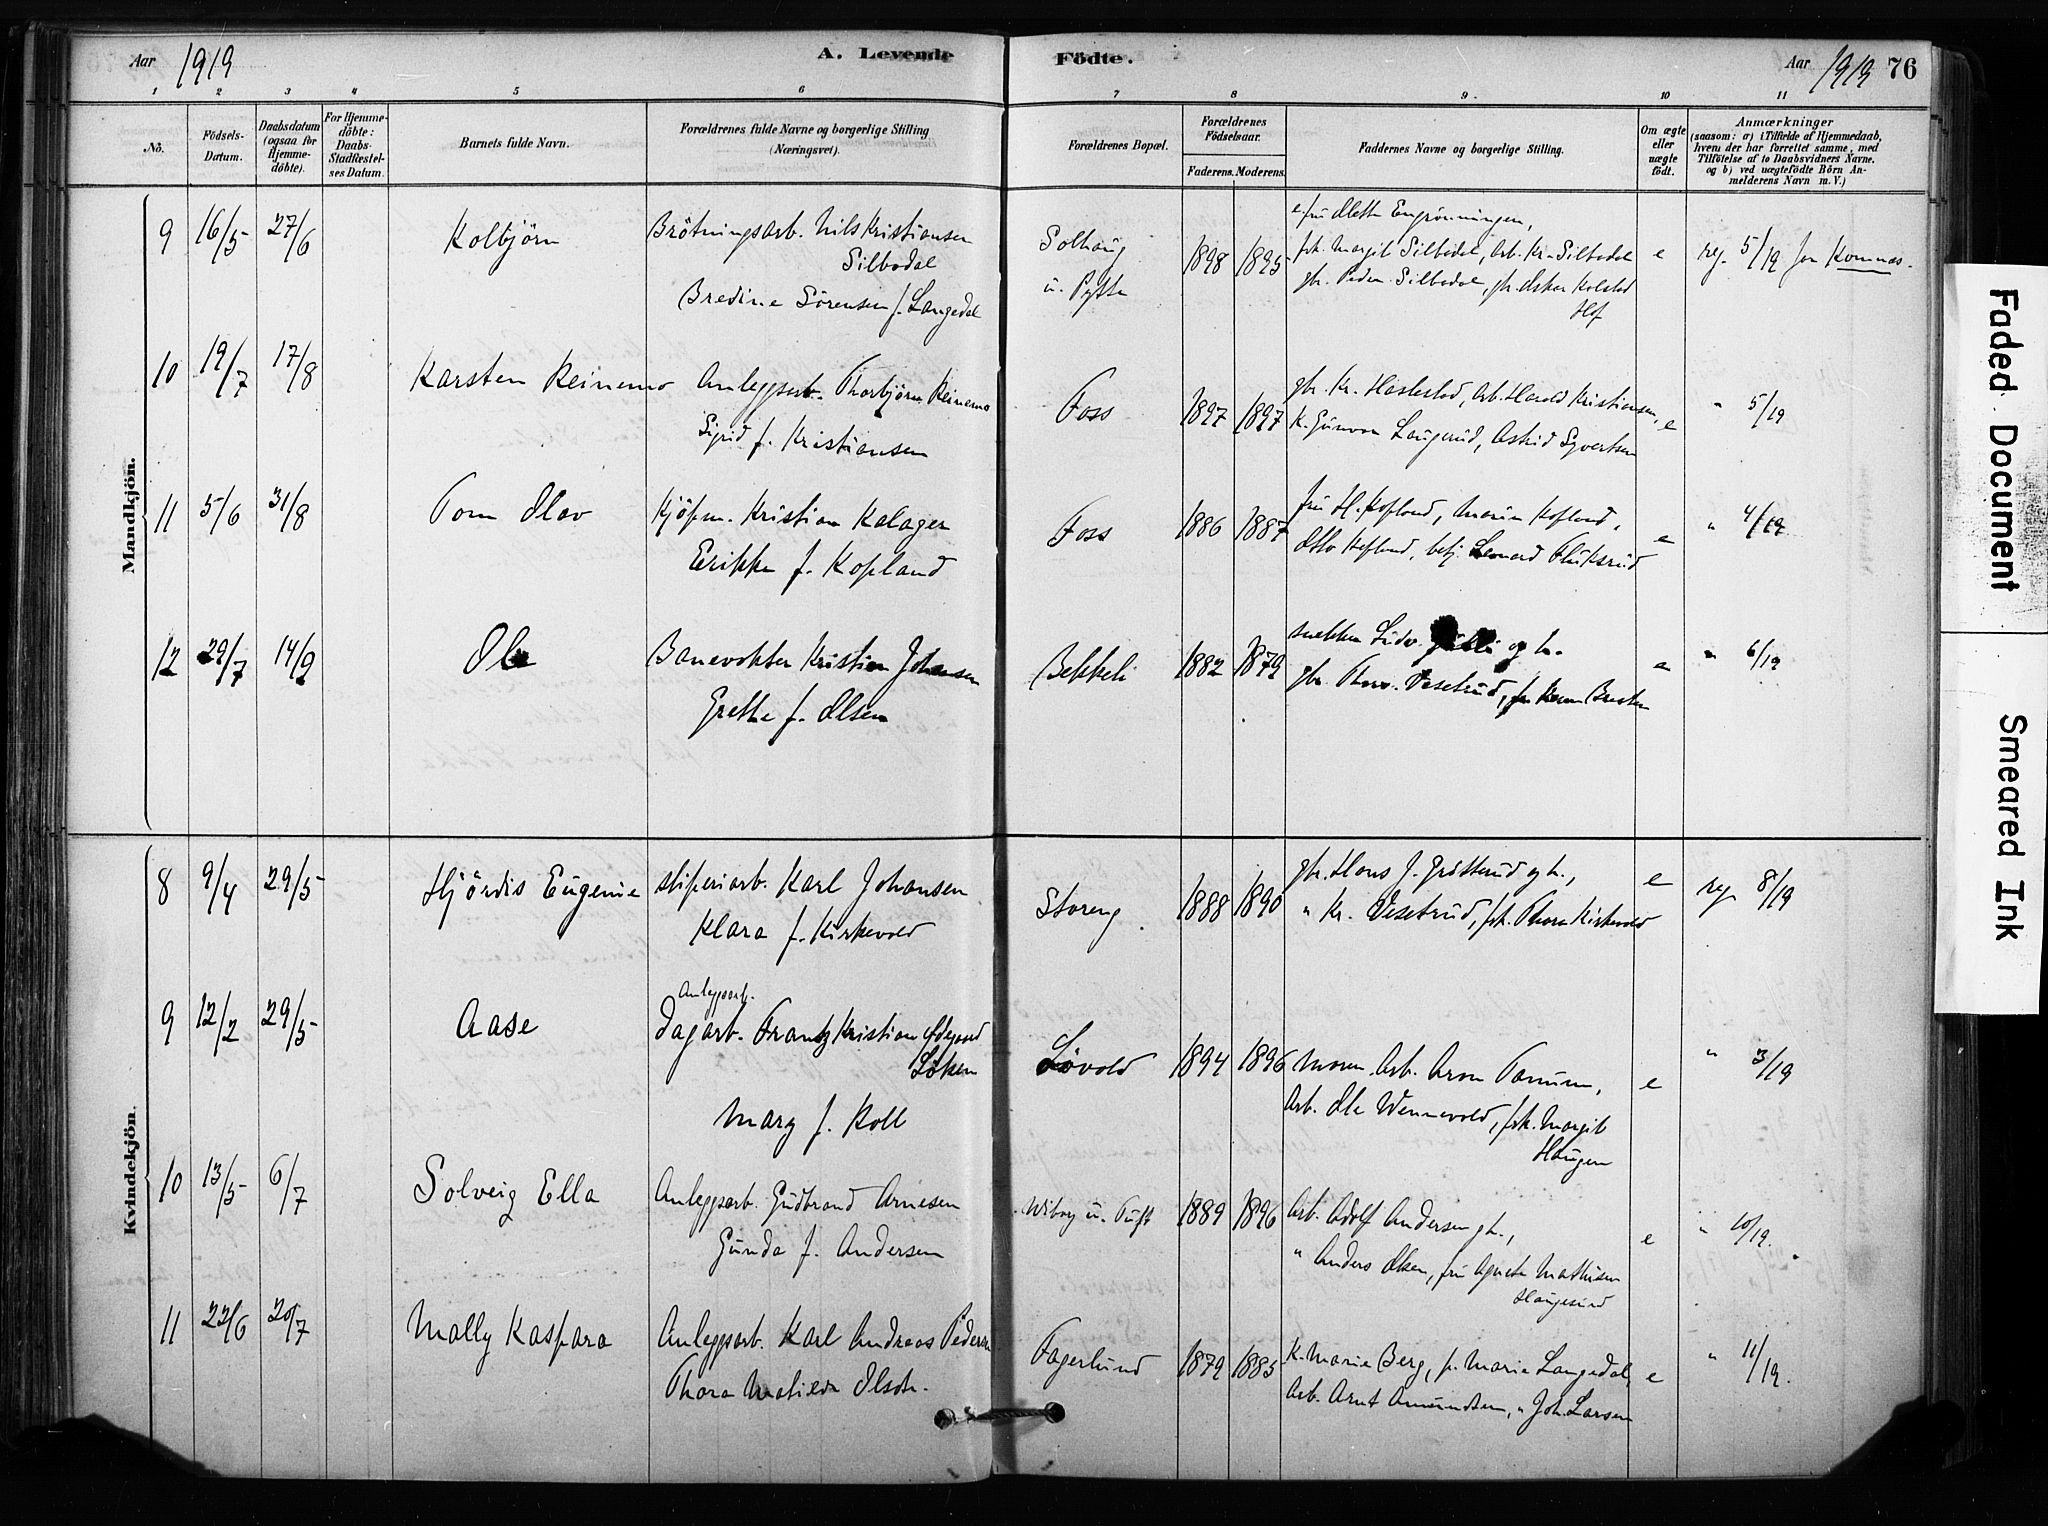 Aar 1919
A. Levende Födte.
Aar 1919 76
1 2 3 4 5 6 7 8 9. 10 11
No.
Födsels-Datum.
Daabsdatum (ogsaa for Hjemmedöbte).
For Hjemmedöbte: Daabs-Stadfæstelses Datum.
Barnets fulde Navn.
Forældrenes fulde Navne og borgerlige Stilling (Næringsvei).
Forældrenes Bopæl.
Forældrenes Födselsaar.
Faderens. Moderens.
Faddernes Navne og borgerlige Stilling.
Om ægte eller uægte födt.
Anmærkninger
(saasom: a) i Tilfælde af Hjemmedaab, hvem der har forrettet samme, med Tilföielse af to Daabsvidners Navne. og b) ved uægtefödte Börn Anmelderens Navn m. V.)
Mandkjön.
9 16/5 27/6 Kolbjörn Brötningsarb. Nils Kristiansen
Silbodal
Bredine Sörensen f. Langedal
Solhaug
1898 1895
frk. Margit Silbodal, Arb. Kr. Silbodal
gbr. Peder Silbodal, gbr. Oskar Kolstad
Hof
e reg. 5/19 for Komnes.
10 19/7 17/8 Karsten Reinemo Anleggsarb. Thorbjörn Reinemo
Sigrid f. Kristiansen
Foss 1897 1897
gbr. Kr. Haslestad, Arb. Harald Kristiansen,
K. Gunvor Laugerud, Astrid Syvertsen
e " 5/19
11 5/6 31/8 Tom Olav Kjöpm. Kristian Kalager
Erikke f. Kopland
Foss 1886 1887
fru H. Kopland, Marie Kopland,
e " 4/19
12 29/7 14/9 Ole Banevokter Kristian Johansen
Grethe f. Olsen
Bekkeli 1882 1879
" 6/19
Kvindekjön.
8 9/4 29/5 Hjördis Eugenie sliperiarb. Karl Johansen
Klara f. Kirkevold
Storeng 1888 1890
gbr. Hans J. Grötterud og h.,
" Kr. Vesetrud, frk. Thora Kirkevold
e reg 8/19
9 12/2 29/5 Aase Anleggsarb.
Dagarb. Frantz Kristian Ødegaard
Löken
Mary f. Koll
Lövold 1894 1896
Moren. Arb. Aron Tanum,
Arb. Ole Wennevold, frk. Margit
Haugen
e " 3/19
10 13/5 6/7 Solveig Ella Anleggsarb. Gudbrand Arnesen
Gunda f. Andersen
Wiborg u. Tuft 1889 1896
Arb. Adolf Andersen og h.,
" Anders Olsen, fru Agnete Mathisen
Haugesund
e " 10/19.
11 22/6 20/7 Mally Kaspara Anleggsarb. Karl Andreas Pedersen
Thora Matilde Olsdtr.
Fagerlund 1879 1885
K. Marie Berg, p. Marie Langedal,
Arb. Arnt Amundsen, " Joh. Larsen
e " 11/19.
Faded Document
Smeared Ink